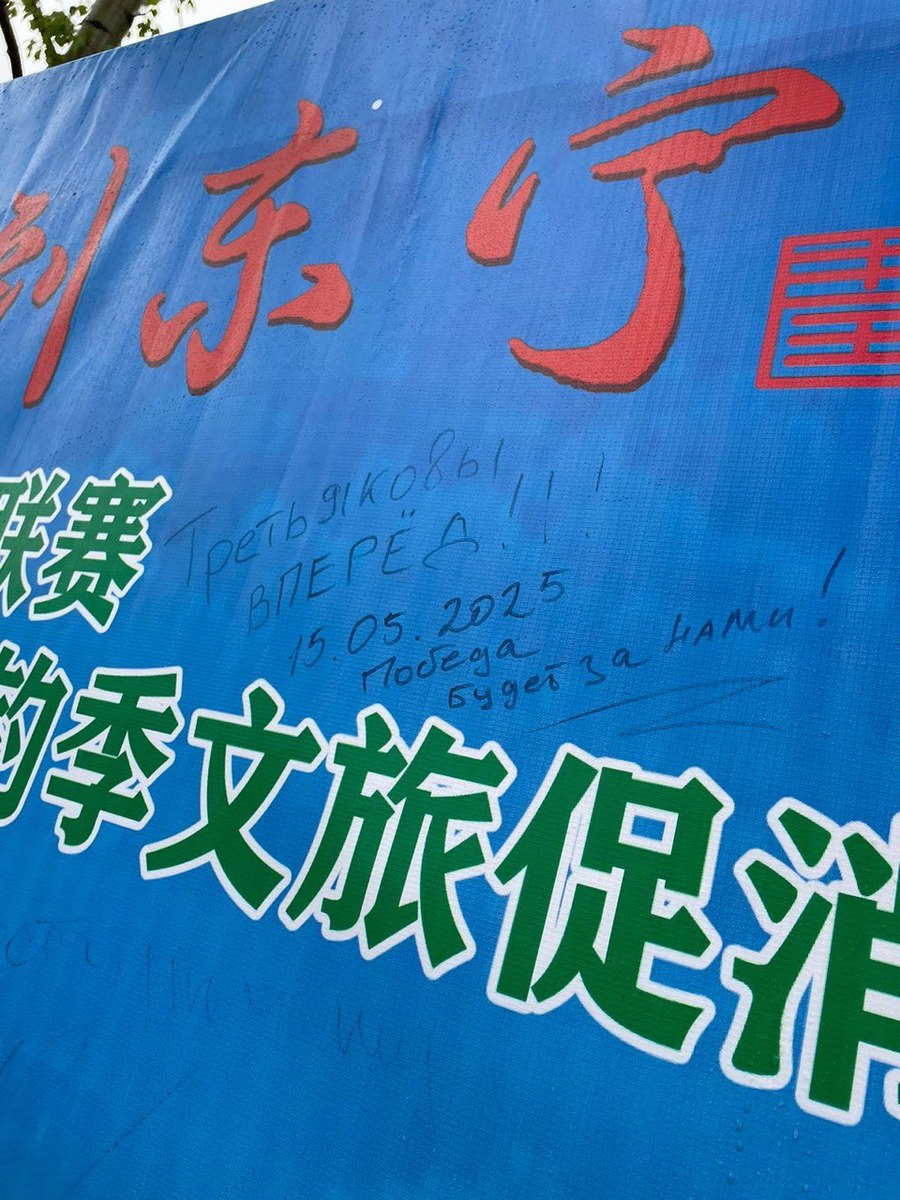 到东宁
联赛
Третьяковы
ВПЕРЁД!!!
15.05.2025
Победа
будет за нами!
钓季文旅促消